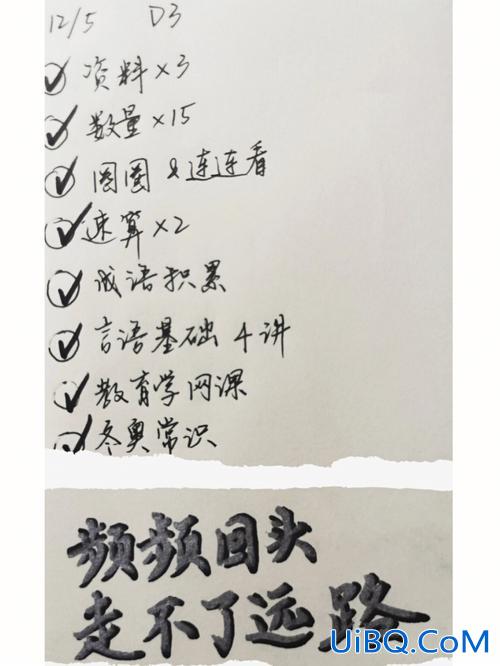 12/5 D3
资料×3
数量×15
圈圈&连连看
速算×2
成语积累
言语基础 4讲
教育学网课
冬奥常识
频频回头
走不了远路
UiBQ.CoM